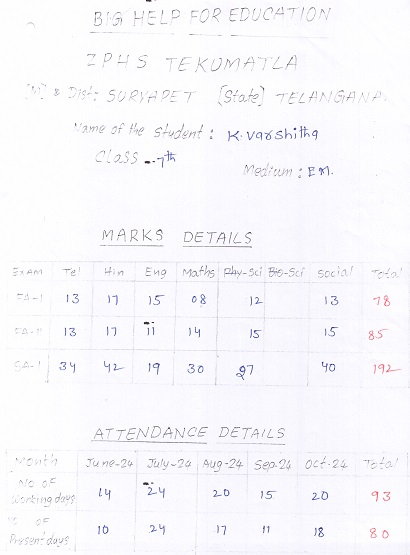 BIG HELP FOR EDUCATION
ZPHS TEKUMATLA
[M] & Dist: SURYAPET [State] TELANGANA
Name of the Student: K. Varshitha
Class - 7th
Medium: EM.
MARKS DETAILS
Exam Tel Hin Eng Maths Phy-Sci Bio-Sci Social Total
FA-I 13 17 15 08 12 13 78
FA-II 13 17 11 14 15 15 85
SA-I 34 42 19 30 27 40 192
ATTENDANCE DETAILS
Month June-24 July-24 Aug-24 Sep-24 Oct-24 Total
No of
Working days 14 24 20 15 20 93
No of
Present days 10 24 17 11 18 80